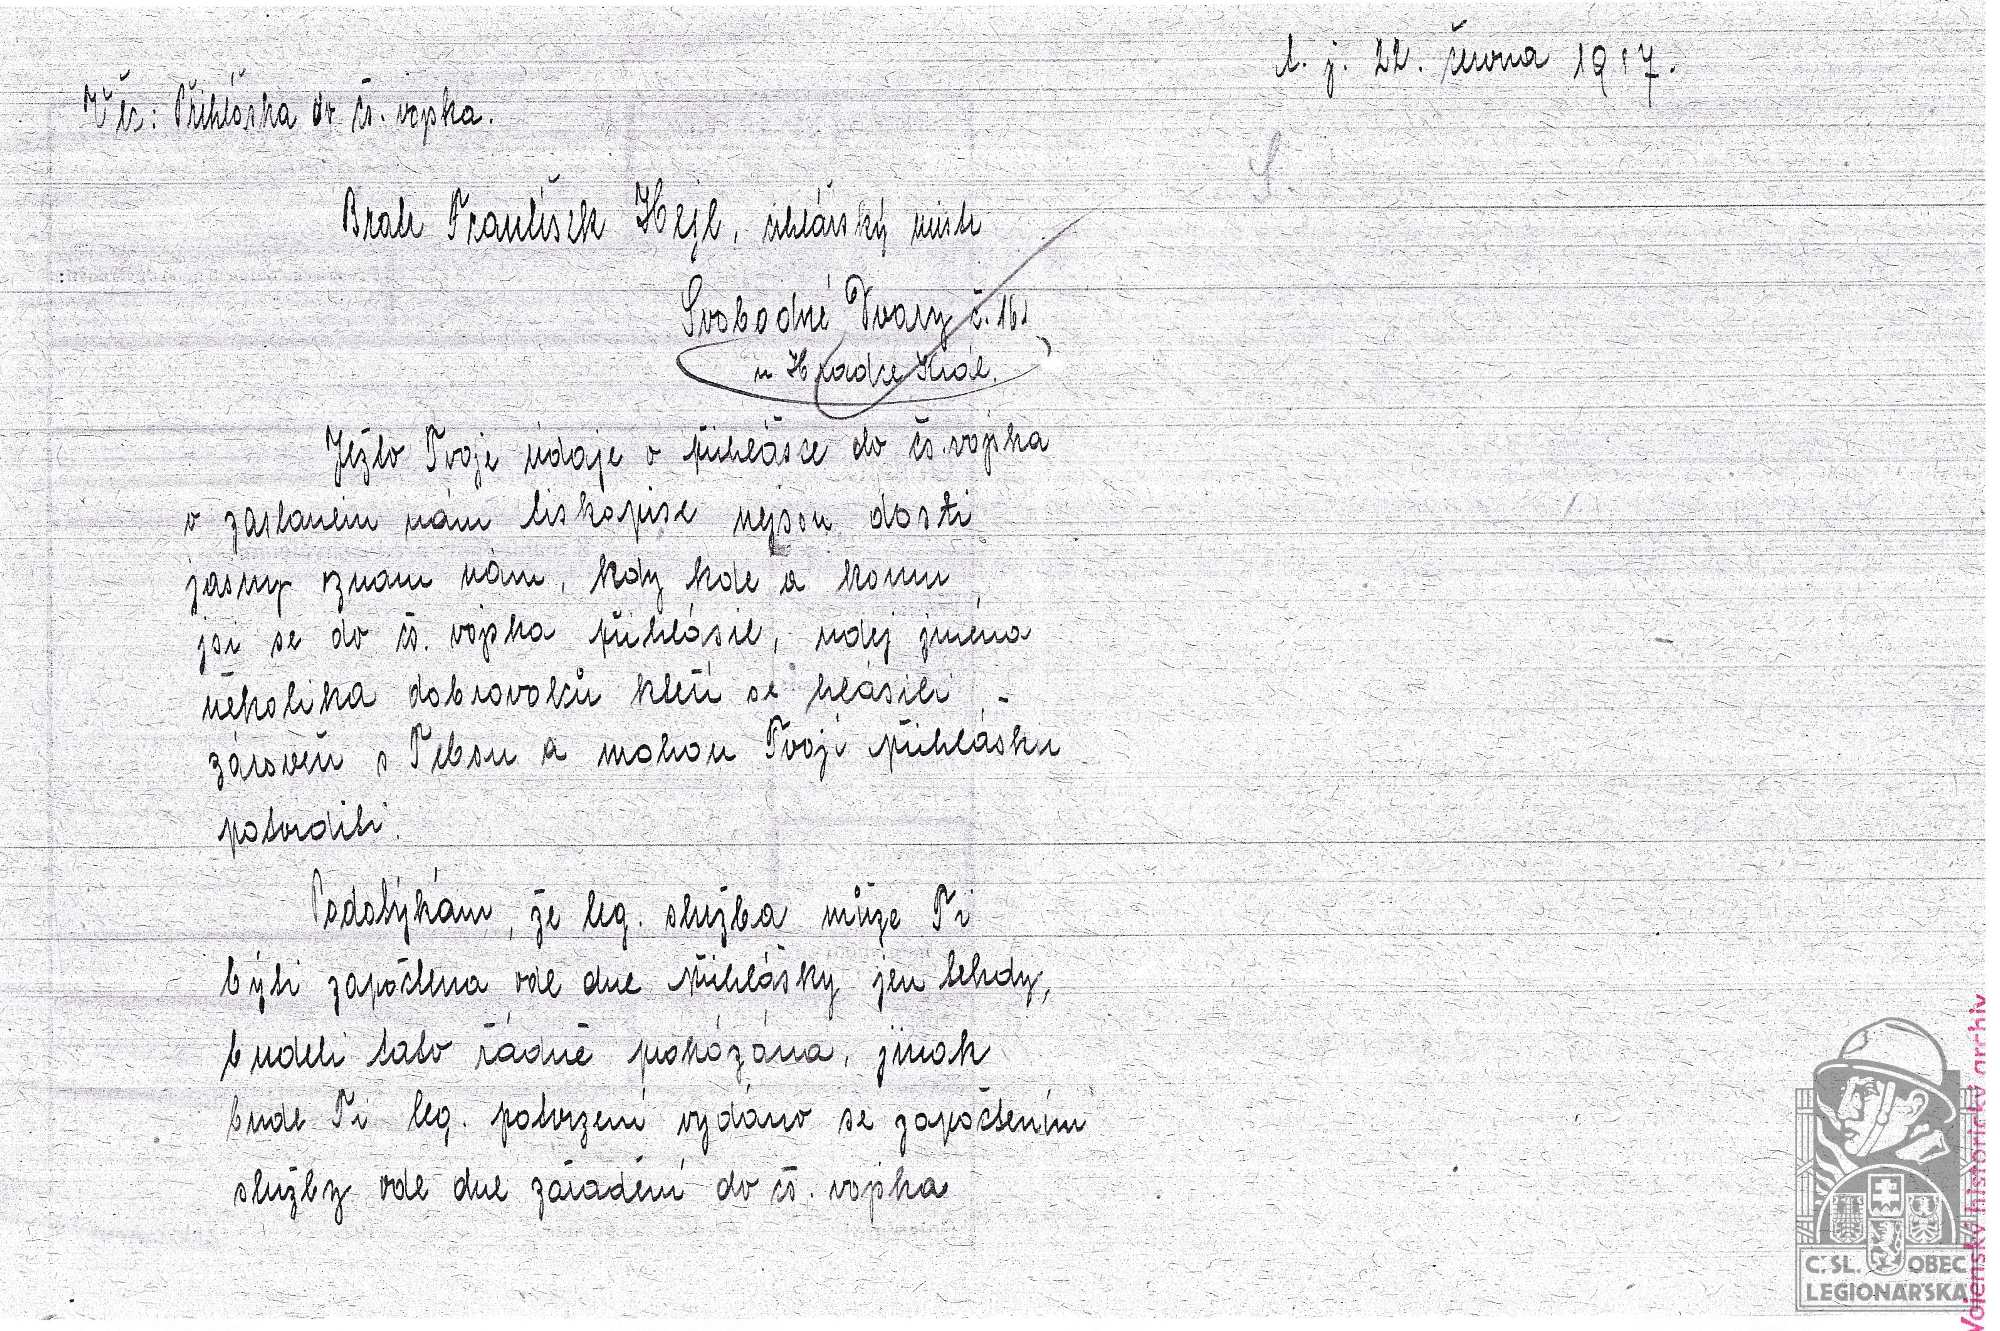 t. j. 22. června 1917.
Věc: Přihláška do čs. vojska.
S.
Bratr František Hejl, cihlářský mistr
Svobodné Dvory č. 161
u Hradce Král.
Ježto Tvoje údaje o přihlášce do čs. vojska
v zaslaném nám liskopise nejsou dosti
jasny oznam nám, kdy kde a komu
jsi se do čs. vojska přihlásil, udej jména
několika dobrovolců kteří se hlásili
zároveň s Tebou a mohou Tvoji přihlášku
potvrditi.
Podotýkám, že leg. služba může Ti
býti započtena ode dne přihlášky jen tehdy,
budeli tato řádně prokázána, jinak
bude Ti leg. potvrzení vydáno se započtením
služby ode dne zařadění do čs. vojska
Vojenský historický archiv
Č. SL. OBEC
LEGIONÁŘSKÁ